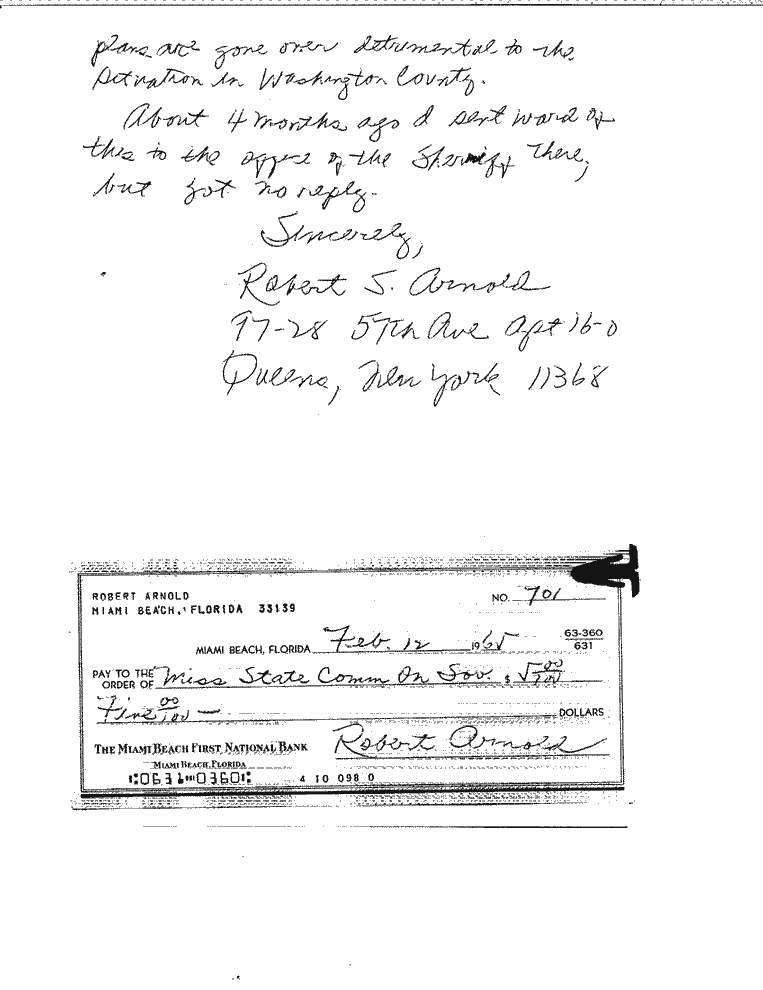 plans are gone over detrimental to the
situation in Washington County.
About 4 months ago I sent word of
this to the office of the Sheriff There,
but got no reply.
Sincerely,
Robert S. Arnold
97-28 57th Ave Apt 16-D
Queens, New York 11368
ROBERT ARNOLD
MIAMI BEACH, FLORIDA 33139
NO. 701
MIAMI BEACH, FLORIDA Feb. 12 1965
63-360
631
PAY TO THE ORDER OF Miss State Comm On Sov. $ 5 00/100
Five 00/100 — DOLLARS
THE MIAMI BEACH FIRST NATIONAL BANK
MIAMI BEACH, FLORIDA
Robert Arnold
⑆0631⑈0360⑆ 4 10 098 0